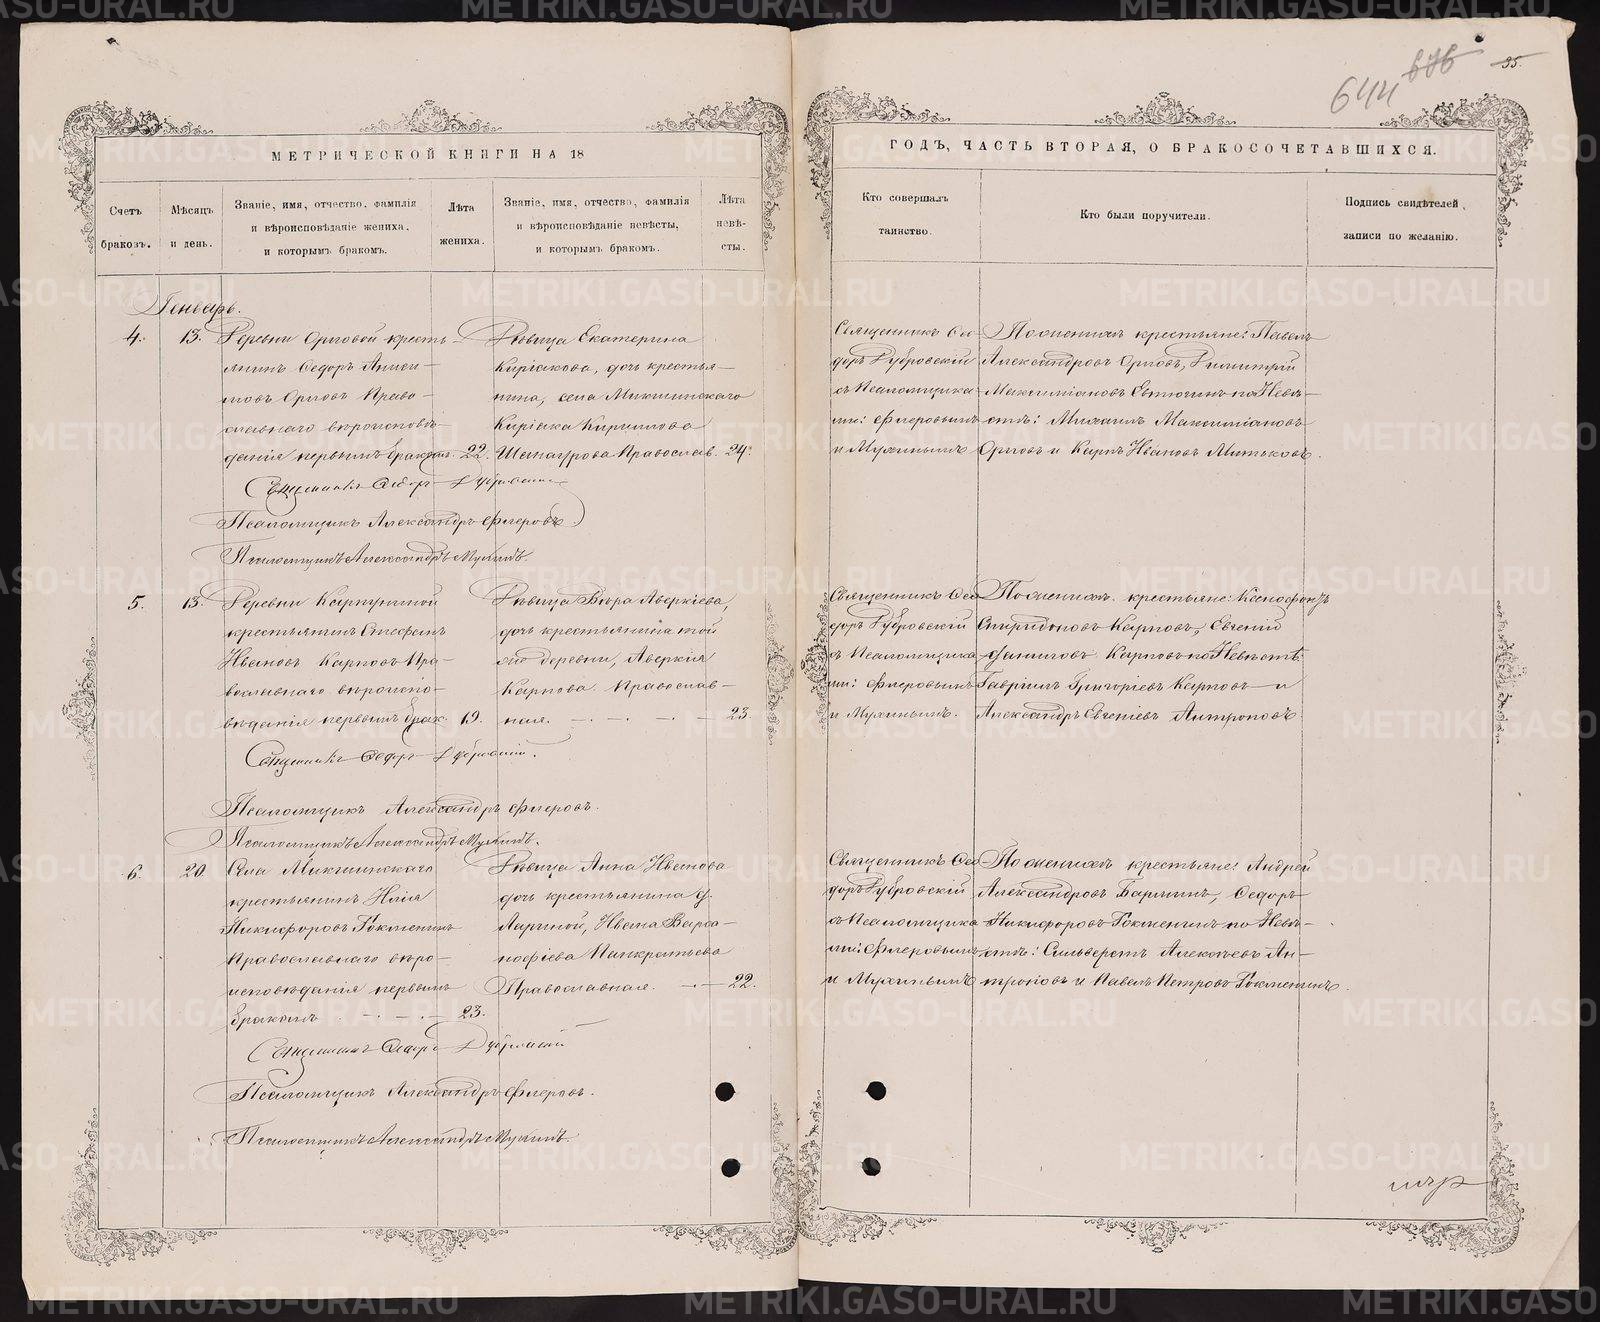 644 676 35.
МЕТРИЧЕСКОЙ КНИГИ НА 18
ГОДЪ, ЧАСТЬ ВТОРАЯ, О БРАКОСОЧЕТАВШИХСЯ.
Счетъ
браковъ.
Мѣсяцъ
и день.
Званіе, имя, отчество, фамилія
и вѣроисповѣданіе жениха,
и которымъ бракомъ.
Лѣта
жениха.
Званіе, имя, отчество, фамилія
и вѣроисповѣданіе невѣсты,
и которымъ бракомъ.
Лѣта
невѣ-
сты.
Кто совершалъ
таинство.
Кто были поручители.
Подпись свидѣтелей
записи по желанію.
Генварь.
4. 13.
Деревни Орловой кресть-
янинъ Ѳедоръ
Орловъ Право-
славнаго вѣроисповѣ-
данія первымъ бракомъ 22.
Дѣвица Екатерина
Киріакова, дочь крестья-
нина, села Микшинскаго
Киріака Кириллова
Шапаурова Православ. 24.
Священникъ Ѳео-
доръ Дубровскій
съ Псаломщика-
ми: Флеровымъ
и Мухинымъ
По женихѣ крестьяне: Павелъ
Александровъ Орловъ, Димитрій
Максиміановъ по Невѣ-
стѣ: Михаилъ Максиміановъ
Орловъ и Карпъ Ивановъ Митьковъ.
Священникъ Ѳедоръ Дубровскій
Псаломщикъ Александръ Флеровъ
Псаломщикъ Александръ Мухинъ.
5. 13.
Деревни Карпуниной
крестьянинъ Стефанъ
Ивановъ Карповъ Пра-
вославнаго вѣроиспо-
вѣданія первымъ брак. 19.
Дѣвица Вѣра Аверкіева,
дочь крестьянина той
же деревни, Аверкія
Карпова. Православ-
ная. 23.
Священникъ Ѳео-
доръ Дубровскій
съ Псаломщика-
ми: Флеровымъ
и Мухинымъ.
По женихѣ крестьяне: Ксенофонтъ
Спиридоновъ Карповъ, Евгеній
Даниловъ Карповъ по Невѣстѣ:
Гавріилъ Григоріевъ Карповъ и
Александръ Евгеніевъ Антроповъ.
Священникъ Ѳедоръ Дубровскій.
Псаломщикъ Александръ Флеровъ.
Псаломщикъ Александръ Мухинъ.
6. 20
Села Микшинскаго
крестьянинъ Илія
Никифоровъ Гокменинъ
Православнаго вѣро-
исповѣданія первымъ
бракомъ 23.
Дѣвица Анна Иванова
дочь крестьянина д.
Лариной, Ивана Варѳо-
Панкратьева
Православная. 22.
Священникъ Ѳео-
доръ Дубровскій
съ Псаломщика-
ми: Флеровымъ
и Мухинымъ
По женихѣ крестьяне: Андрей
Александровъ Барминъ, Ѳедоръ
Никифоровъ Гокменинъ по Невѣ-
стѣ: Сильверстъ Алексѣевъ Ан-
троповъ и Павелъ Петровъ Гокменинъ.
Священникъ Ѳедоръ Дубровскій
Псаломщикъ Александръ Флеровъ.
Псаломщикъ Александръ Мухинъ.
METRIKI.GASO-URAL.RU